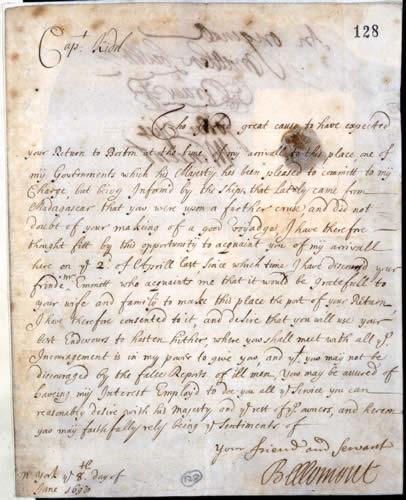 128
Capt. Kidd
Tho I had great cause to have expected
your Return to Boston at the time of my arrivall to this place one of
my Governments which his Majesty has been pleased to committ to my
Charge but being Informed by the Ships that Lately came from
Madagascar that yow were upon a farther cruse and did not
doubt of your making of a good Voyadge, I have therefore
thought fitt by this opportunity to acquaint you of my arrivall
here on ye 2d. of Aprill last Since which time I have discoursed your
frinde mr. Emmott who acquaints me that it would be gratefull to
your wife and family to make this place the port of your Return
I have therefore consented to it, and desire that you will use your
best Endevours to hasten hither, where yow shall meet with all ye.
Incouragement is in my power to give yow, and yt. yow may not be
discouraged by the false Reports of ill men, yow may be assured of
haveing my Interest Employ'd to doe you all ye Service you can
reasonably desire with his Majesty and ye rest of ye owners, and herein
yow may faithfully rely being ye Sentiments of
Your friend and Servant
Bellomont
N York ye 8th. day of
June
122